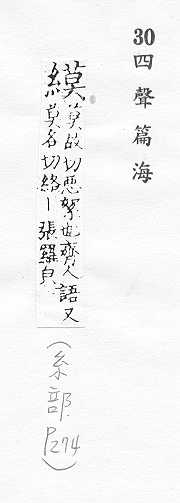 30四聲篇海
縸
莫故切惡絮也齊人語又
莫各切絡丨張羅皃
(糸部 P274)